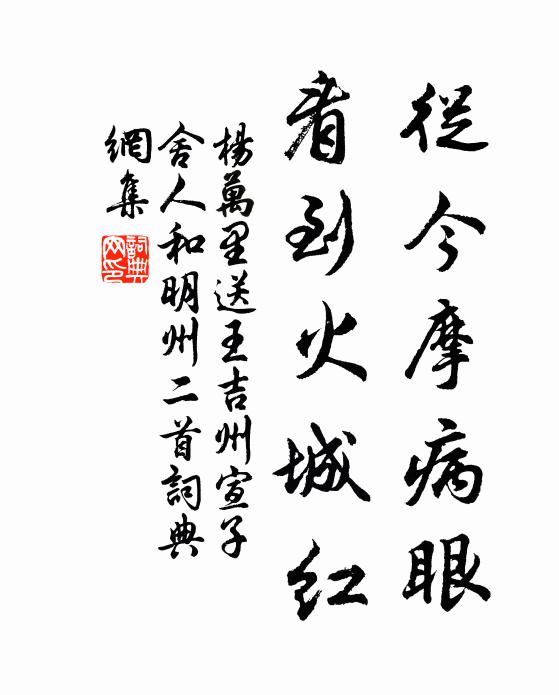 從今摩病眼
看到火城紅
楊萬里送王吉州宣子
舍人和明州二首詞典
網集
詞典
网印